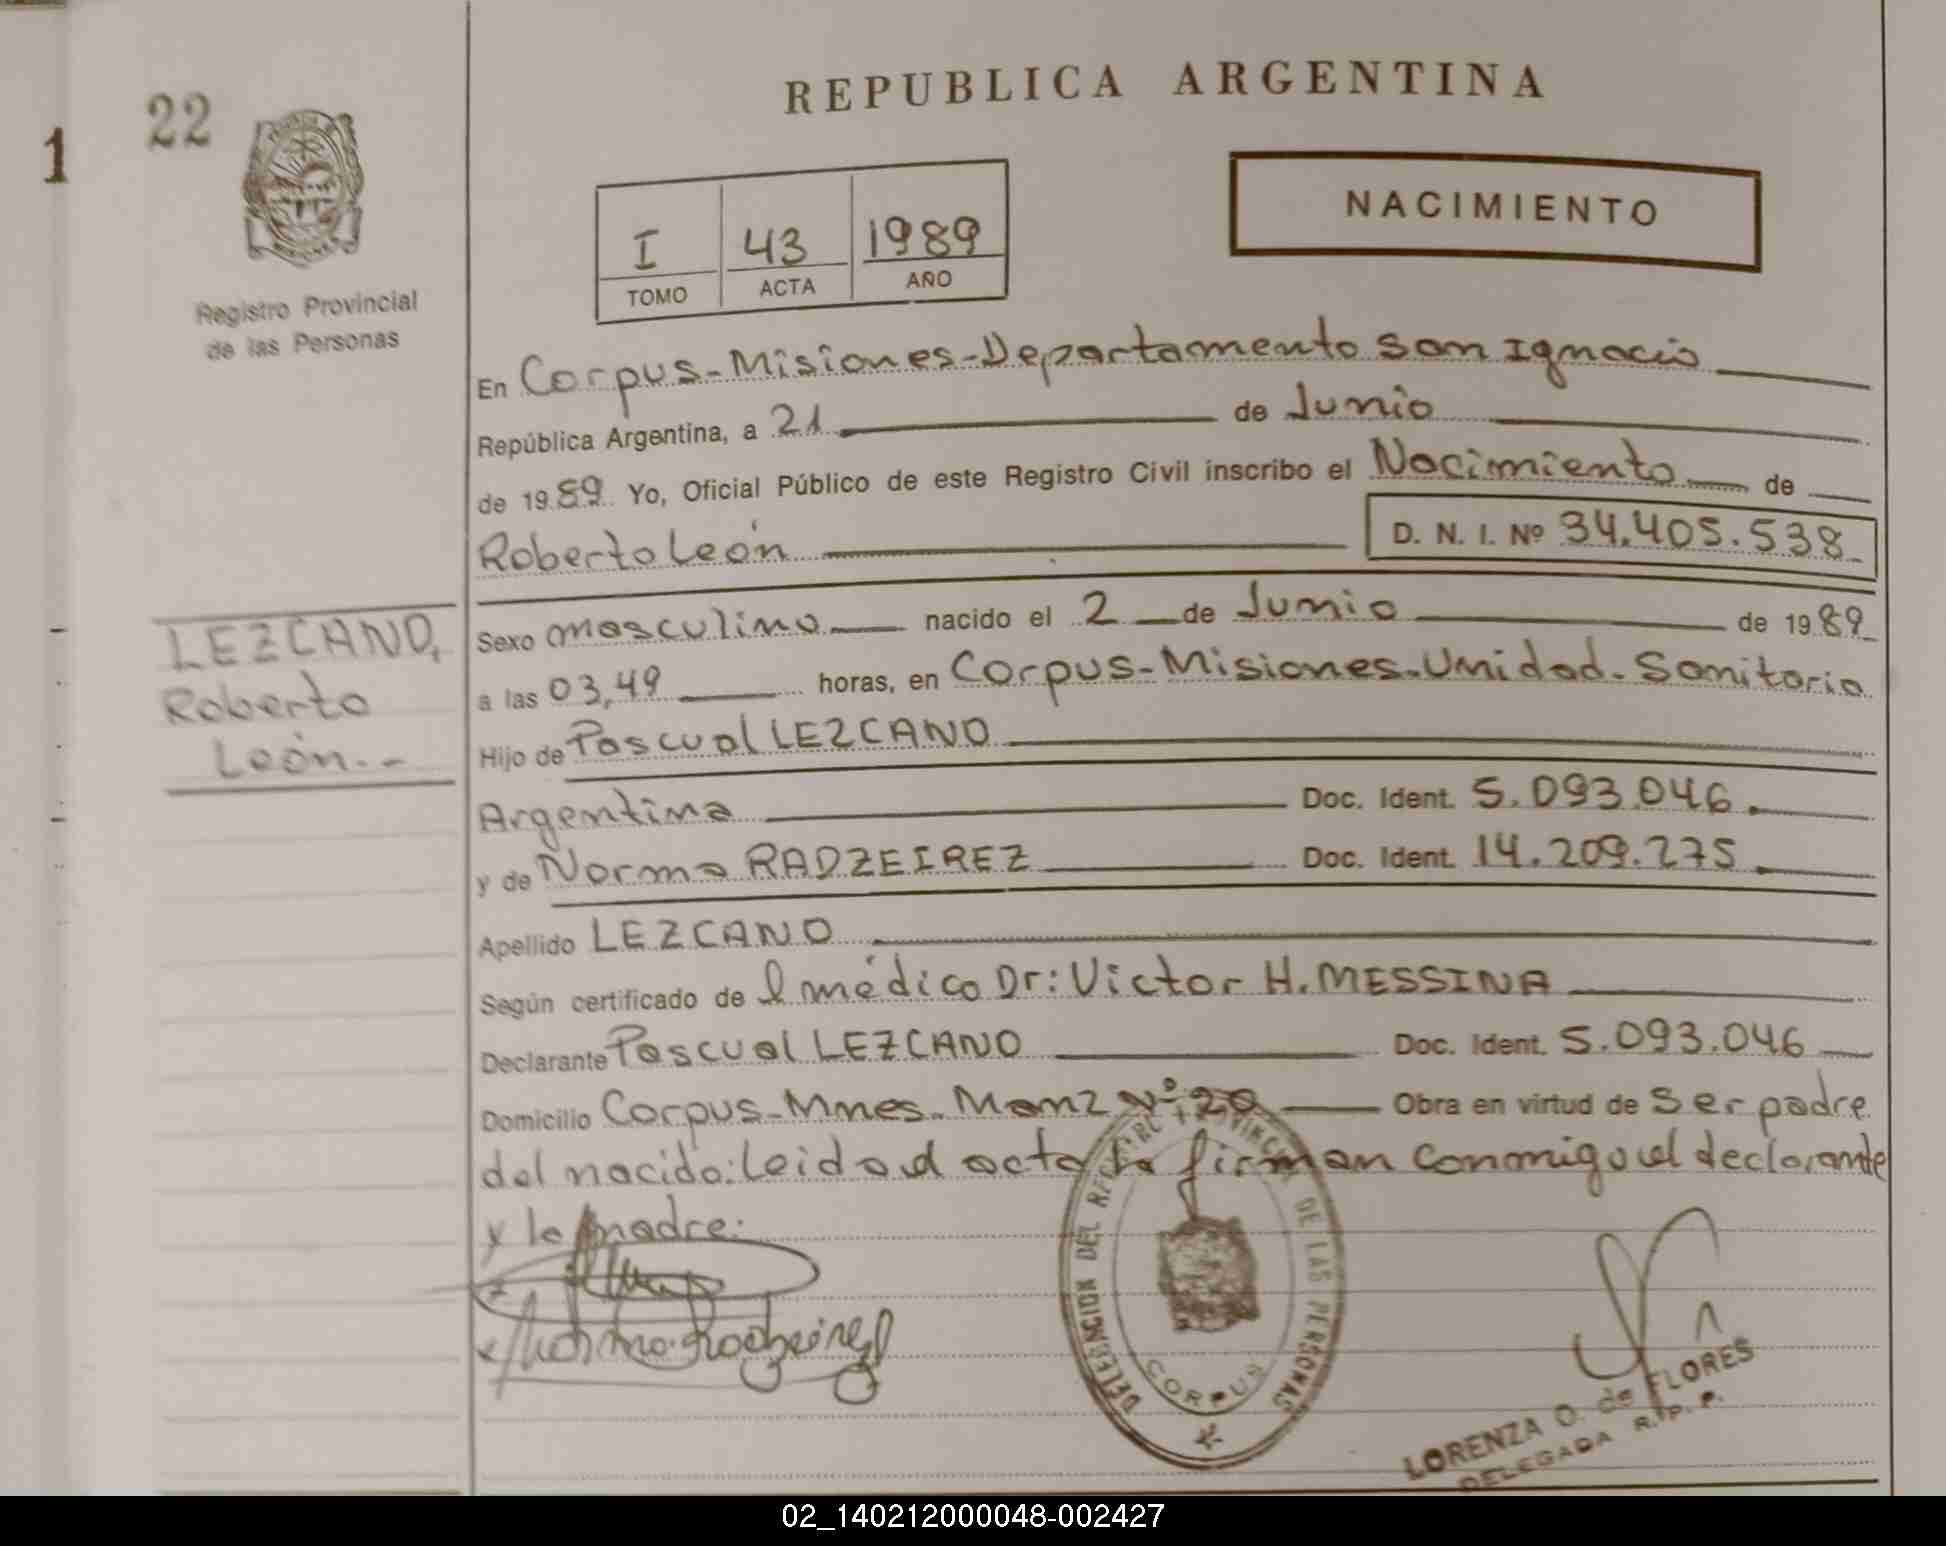 REPUBLICA ARGENTINA
1
22
NACIMIENTO
I 43 1989
TOMO ACTA AÑO
Registro Provincial
de las Personas
En Corpus-Misiones-Departamento San Ignacio
República Argentina, a 21 de Junio
de 1989 Yo, Oficial Público de este Registro Civil inscribo el Nacimiento de
Roberto León D. N. I. Nº 34.405.538
LEZCANO,
Roberto
León.-
Sexo masculino nacido el 2 de Junio de 1989
a las 03,49 horas, en Corpus-Misiones-Unidad-Sanitaria
Hijo de Pascual LEZCANO
Argentina Doc. Ident. 5.093.046.
y de Norma RADZEIREZ Doc. Ident. 14.209.275
Apellido LEZCANO
Según certificado de l médico Dr: Victor H. MESSINA
Declarante Pascual LEZCANO Doc. Ident. 5.093.046
Domicilio Corpus-Mnes-Manz Nº 20 Obra en virtud de Ser padre
del nacido: Leida el acta la firman conmigo el declarante
y la madre:
DELEGACION DEL REGISTRO PROVINCIAL DE LAS PERSONAS
CORPUS
LORENZA O. de FLORES
DELEGADA R. P. P.
02_140212000048-002427